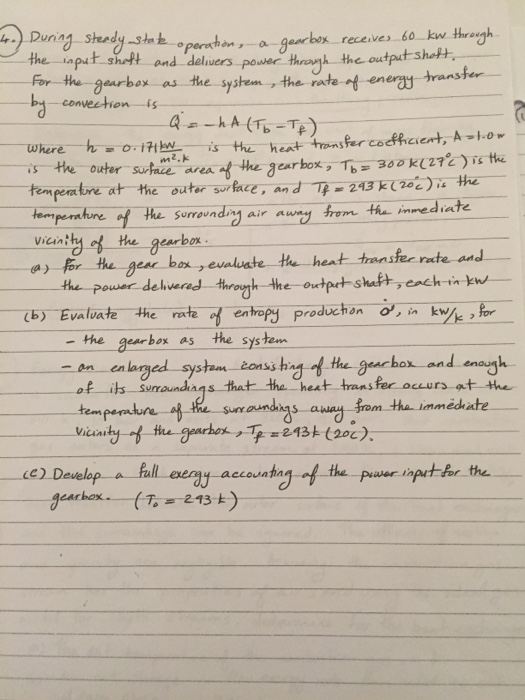 4.) During steady state operation, a gearbox receives 60 kw through
the input shaft and delivers power through the output shaft.
For the gearbox as the system, the rate of energy transfer
by convection is
Q̇ = -hA (Tb - Tf)
where h = 0.171 kw/m².k is the heat transfer coefficient, A = 1.0 m
is the outer surface area of the gearbox, Tb = 300 k (27°c) is the
temperature at the outer surface, and Tf = 293 k (20°c) is the
temperature of the surrounding air away from the immediate
vicinity of the gearbox.
(a) for the gear box, evaluate the heat transfer rate and
the power delivered through the output shaft, each in kw
(b) Evaluate the rate of entropy production σ̇, in kw/k, for
- the gearbox as the system
- an enlarged system consisting of the gearbox and enough
of its surroundings that the heat transfer occurs at the
temperature of the surroundings away from the immediate
vicinity of the gearbox, Tf = 293 k (20°c).
(c) Develop a full exergy accounting of the power input for the
gearbox. (T₀ = 293 k)